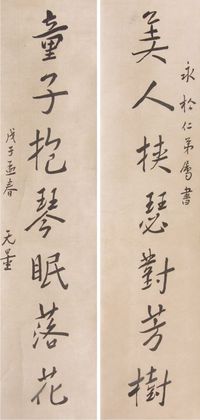 永於仁弟屬書
美人挾瑟對芳樹
童子抱琴眠落花
戊子孟春
无量